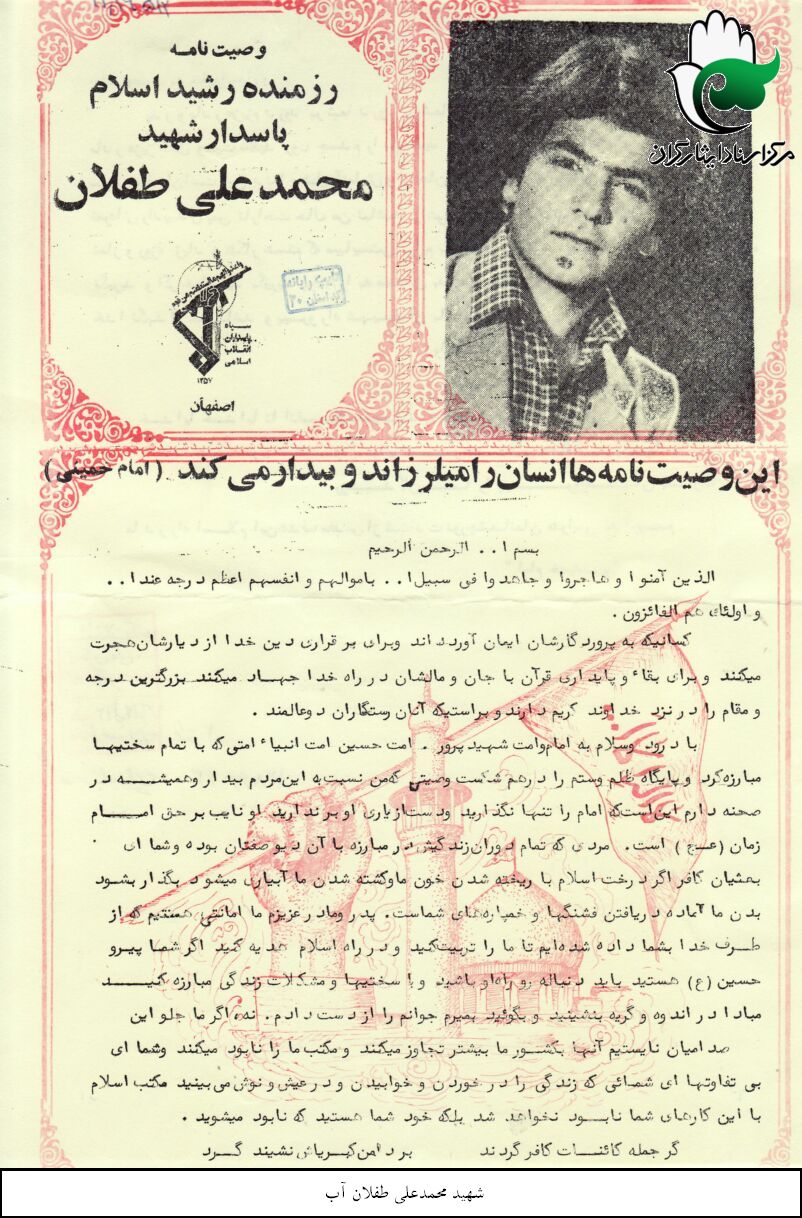 وصیت نامه
رزمنده رشید اسلام
پاسدار شهید
محمد علی طفلان
سپاه
پاسداران
انقلاب
اسلامی
۱۳۵۷
اصفهان
مرکز اسناد ایثارگران
این وصیت نامه ها انسان را میلرزاند و بیدار می کند (امام خمینی)
بسم ا.. الرحمن الرحیم
الذین آمنوا و هاجروا و جاهدوا فی سبیل ا.. باموالهم و انفسهم اعظم درجه عند ا..
و اولئک هم الفائزون .
کسانیکه به پروردگارشان ایمان آورده‌اند وبرای برقراری دین خدا از دیارشان هجرت
میکنند و برای بقاء و پایداری قرآن با جان و مالشان در راه خدا جهاد میکنند بزرگترین درجه
و مقام را در نزد خداوند کریم دارند و براستیکه آنان رستگاران دو عالمند .
با درود وسلام به امام وامت شهید پرور . امت حسین امت انبیاء امتی که با تمام سختیها
مبارزه کرد و پایگاه ظلم وستم را درهم شکست وصیتی که من نسبت به این مردم بیدار وهمیشه در
صحنه دارم این است که امام را تنها نگذارید ودست از یاری او برندارید او نایب بر حق امام
زمان (عج) است . مردی که تمام دوران زندگیش در مبارزه با آن دیو صفتان بوده وشما ای
بعثیان کافر اگر درخت اسلام با ریخته شدن خون ماوکشته شدن ما آبیاری میشود بگذار بشود
بدن ما آماده دریافتن فشنگها و خمپاره‌های شماست. پدر ومادر عزیزم ما امانتی هستیم که از
طرف خدا بشما داده شده‌ایم تا ما را تربیت کنید و در راه اسلام هدیه کنید اگر شما پیرو
حسین (ع) هستید باید دنباله رو راه او باشید و با سختیها ومشکلات زندگی مبارزه کنید
مبادا در اندوه و گریه بنشینید و بگوئید بمیرم جوانم را از دست دادم . نه اگر ما جلو این
صدامیان نایستیم آنها بکشور ما بیشتر تجاوز میکنند و مکتب ما را نابود میکنند وشما ای
بی تفاوتها ای شمائی که زندگی را در خوردن و خوابیدن و در عیش و نوش می بینید مکتب اسلام
با این کارهای شما نابود نخواهد شد بلکه خود شما هستید که نابود میشوید .
گر جمله کائنات کافر گردند بر دامن کبریاش ننشیند گرد
شهید محمدعلی طفلان آب